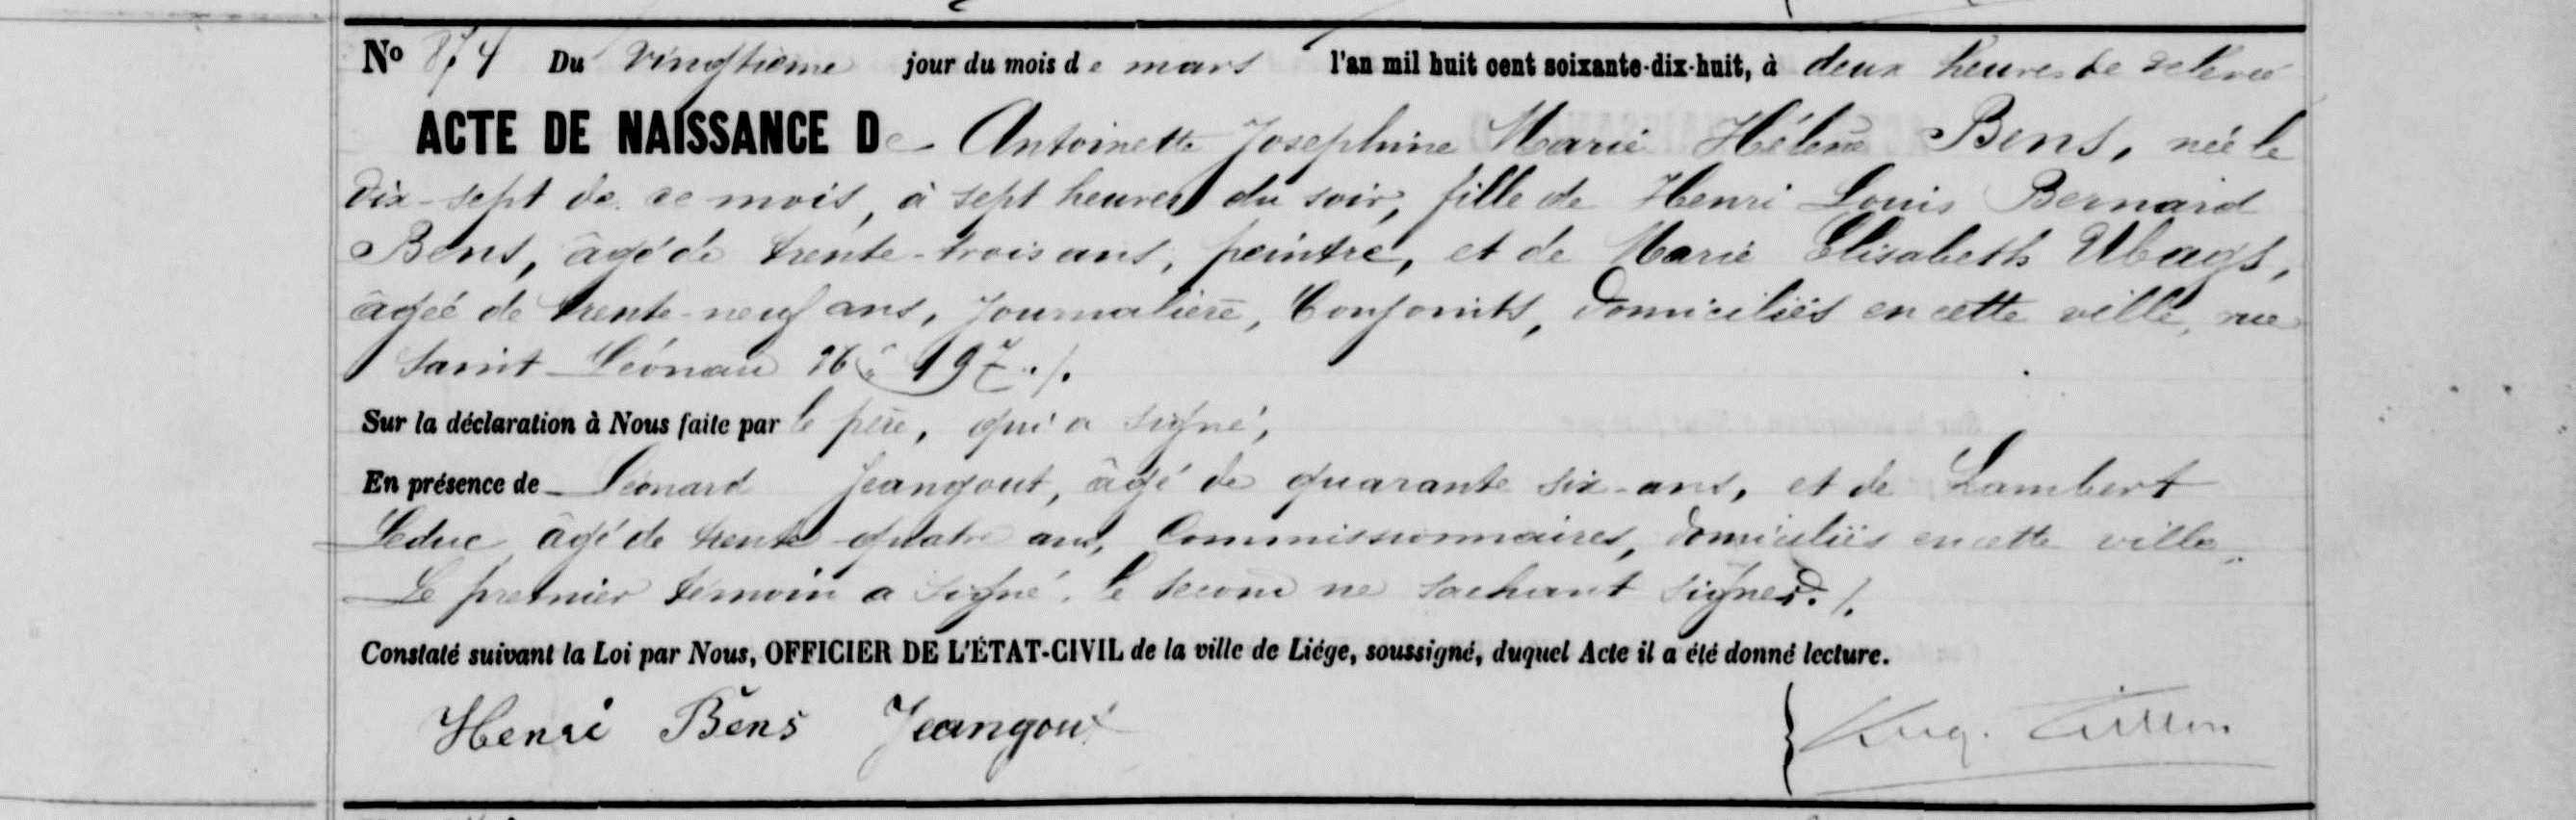 No 874 Du vingtième jour du mois de mars l'an mil huit cent soixante-dix-huit, à deux heures de relevée
ACTE DE NAISSANCE De Antoinette Josephine Marie Hélène Bens, née le
dix-sept de ce mois, à sept heures du soir, fille de Henri Louis Bernard
Bens, âgé de trente-trois ans, peintre, et de Marie Elisabeth Ubags,
âgée de trente-neuf ans, journalière, Conjoints, domiciliés en cette ville, rue
Saint Léonard 197 ./.
Sur la déclaration à Nous faite par le père, qui a signé,
En présence de Léonard Jeangout, âgé de quarante six-ans, et de Lambert
Leduc âgé de trente-quatre ans, Commissionnaires, domiciliés en cette ville.
Le premier témoin a signé, le second ne sachant signer. /.
Constaté suivant la Loi par Nous, OFFICIER DE L'ÉTAT-CIVIL de la ville de Liége, soussigné, duquel Acte il a été donné lecture.
Henri Bens Jeangout